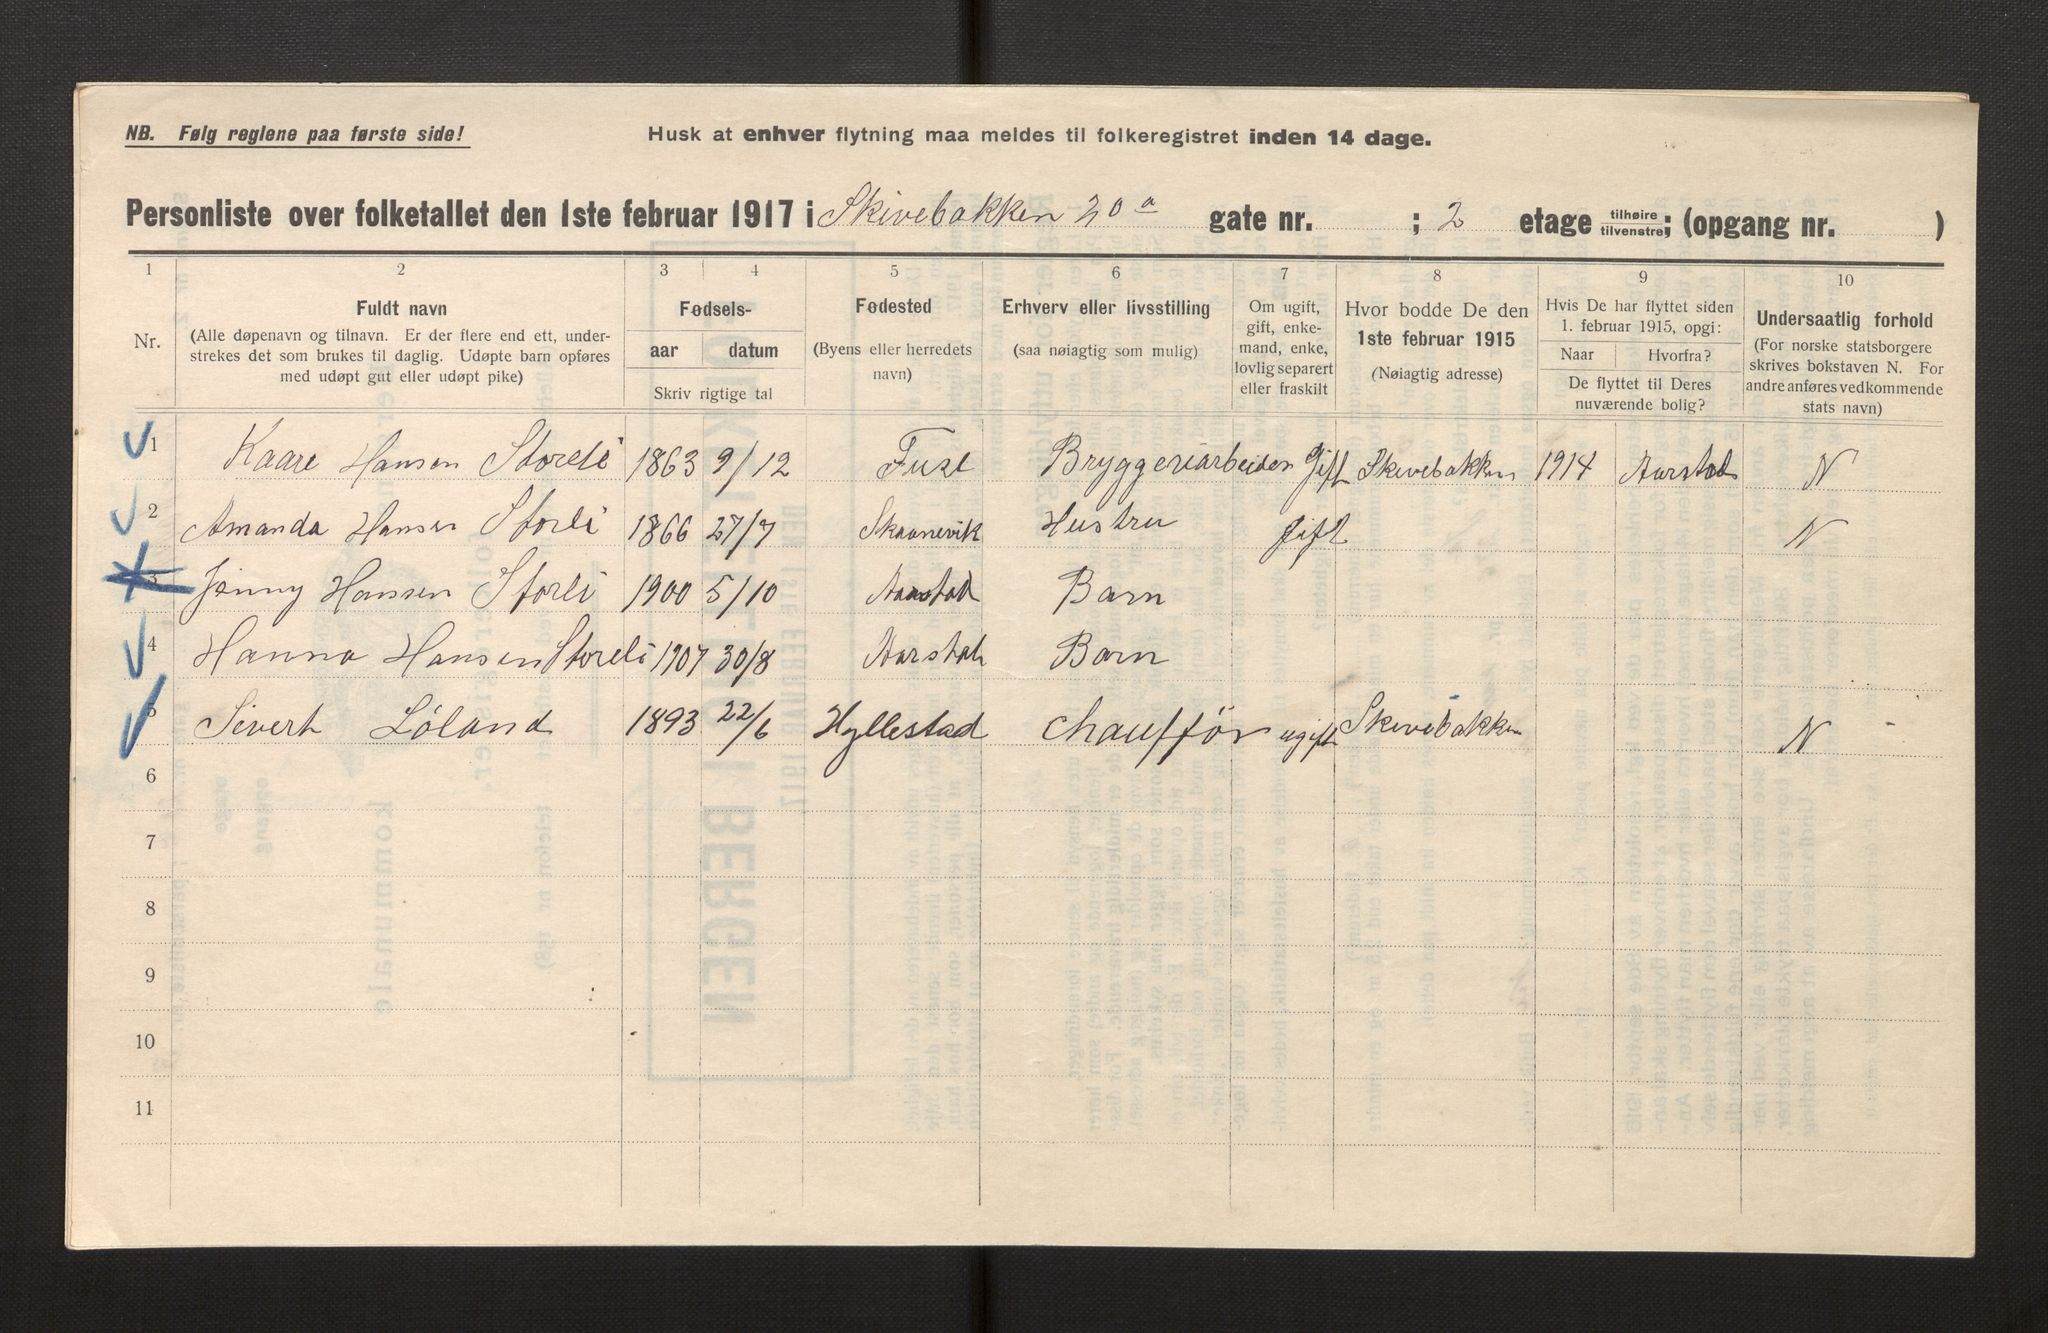 NB. Følg reglene paa første side!
Husk at enhver flytning maa meldes til folkeregistret inden 14 dage.
Personliste over folketallet den 1ste februar 1917 i Skivebakken 20 a gate nr. ; 2 etage tilhøire tilvenstre; (opgang nr. )
1 2 3 4 5 6 7 8 9 10
Nr.
Fuldt navn
(Alle døpenavn og tilnavn. Er der flere end ett, under-
strekes det som brukes til daglig. Udøpte barn opføres
med udøpt gut eller udøpt pike)
Fødsels-
aar datum
Skriv rigtige tal
Fødested
(Byens eller herredets
navn)
Erhverv eller livsstilling
(saa nøiagtig som mulig)
Om ugift,
gift, enke-
mand, enke,
lovlig separert
eller fraskilt
Hvor bodde De den
1ste februar 1915
(Nøiagtig adresse)
Hvis De har flyttet siden
1. februar 1915, opgi:
Naar Hvorfra?
De flyttet til Deres
nuværende bolig?
Undersaatlig forhold
(For norske statsborgere
skrives bokstaven N. For
andre anføres vedkommende
stats navn)
1 Kaare Hansen Storeli 1863 9/12 Fuse Bryggeriarbeider Gift Skivebakken 1914 Aarstad N
2 Amanda Hansen Storli 1866 27/7 Skaanevik Hustru gift N
3 Jenny Hansen Storli 1900 5/10 Aarstad Barn
4 Hanna Hansen Storeli 1907 30/8 Aarstad Barn
5 Sivert Löland 1893 22/6 Hyllestad Chaufför ugift Skivebakken N
6
7
8
9
10
11